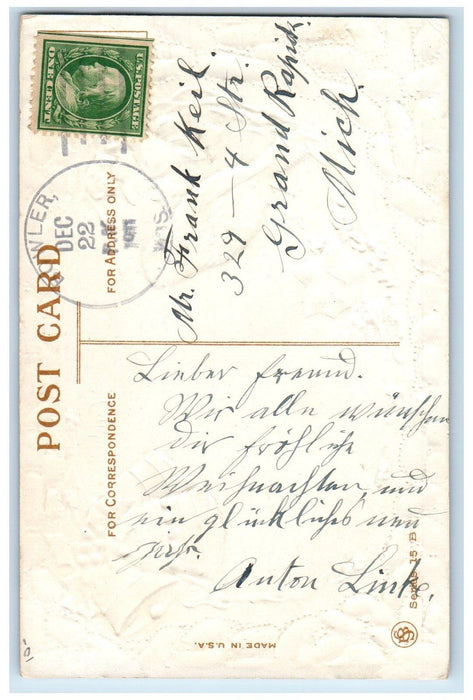 U.S. POSTAGE
ONE CENT
WLER,
DEC
22
1911
POST CARD
FOR ADDRESS ONLY
Mr. Frank Keil.
329 — 4 Str.
Grand Rapids
Mich.
FOR CORRESPONDENCE
Lieber Freund.
Wir alle wünschen
dir fröhliche
Weihnachten, und
ein glückliches neu
jahr.
Anton Link.
Series 15 B
MADE IN U.S.A.